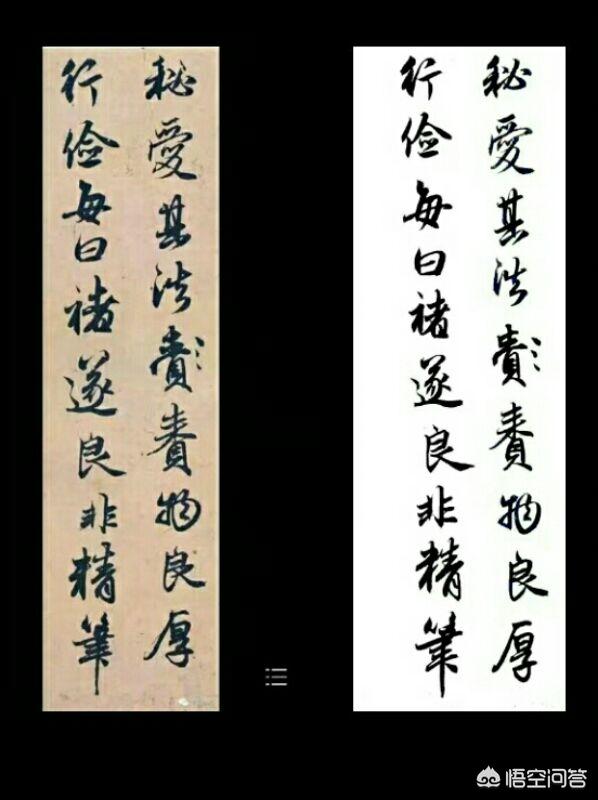 秘愛其法賚物良厚
行儉每曰褚遂良非精筆
秘愛其法賚物良厚
行儉每曰褚遂良非精筆
悟空问答